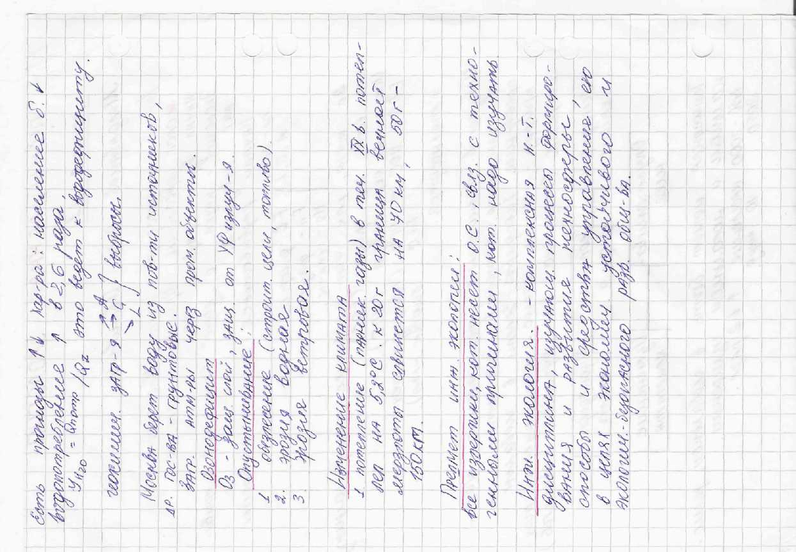 Есть прогнозы ↑↓ хар-ра: население б. ↓
водопотребление ↑ в 2,6 раза,
это ведет к вододефициту.
геохимич. загр-я → A Г L } выбросы.
Москва берет воду из пов-ти источников,
др. гос-ва - грунтовые.
загр. атм-ры через пром. объекты.
Озонодефицит
O3 - защ слой, защ. от УФ излуч-я.
Опустынивание:
1 обезлесение (строит. цели, топливо).
2. эрозия водная
3. эрозия ветровая.
Изменение климата
1 потепление (парник. газы) в теч. XX в. потеп-
лел на 5,2°C. к 20г граница вечной
мерзлоты сдвинется на 40 км, 50г -
150 км.
Предмет инж. экологии:
все издержки, кот. несет о.с. связ. с техно-
генными причинами, кот. надо изучать
Инж. экология. - комплексная н.-т.
дисциплина, изучающ. процессы формиро-
вания и развития техносферы,
способы и средства управления ею
в целях экономич устойчивого и
экологич. безопасного разв. общ-ва.